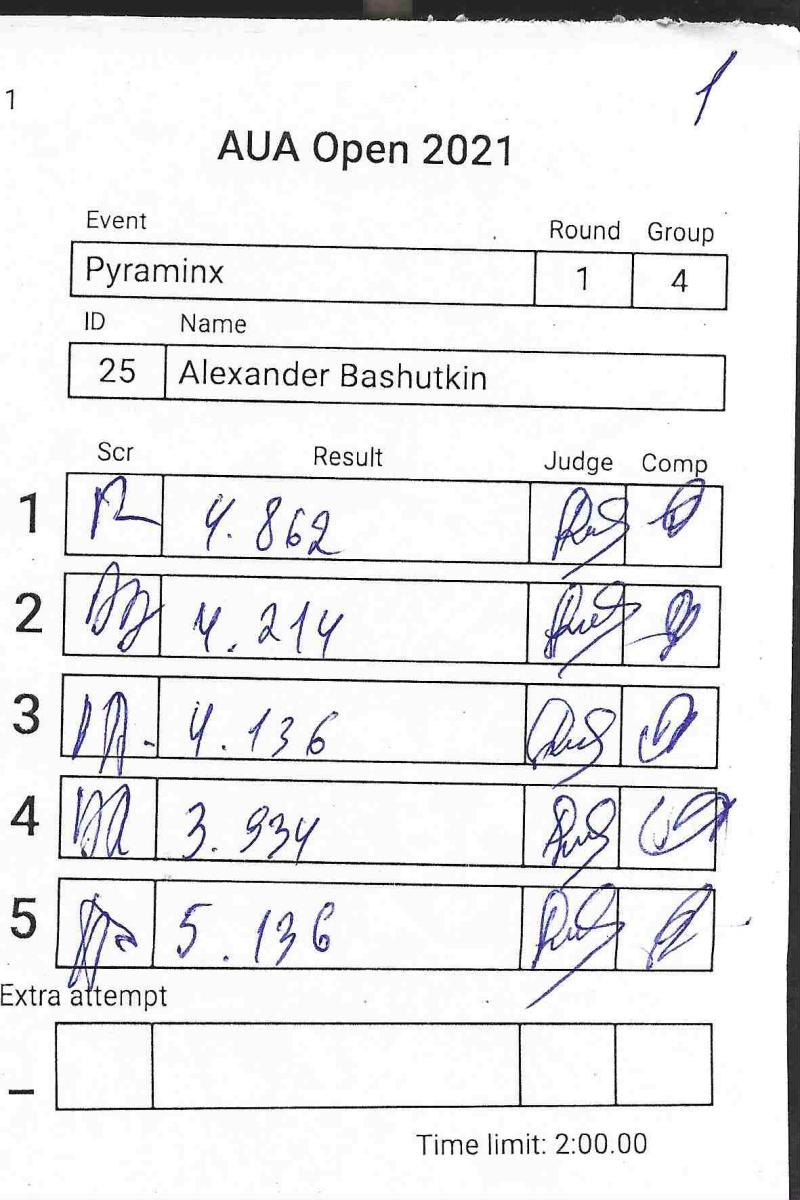 1
1
AUA Open 2021
Event Round Group
Pyraminx 1 4
ID Name
25 Alexander Bashutkin
Scr Result Judge Comp
1 4.862
2 4.214
3 4.136
4 3.934
5 5.136
Extra attempt
–
Time limit: 2:00.00